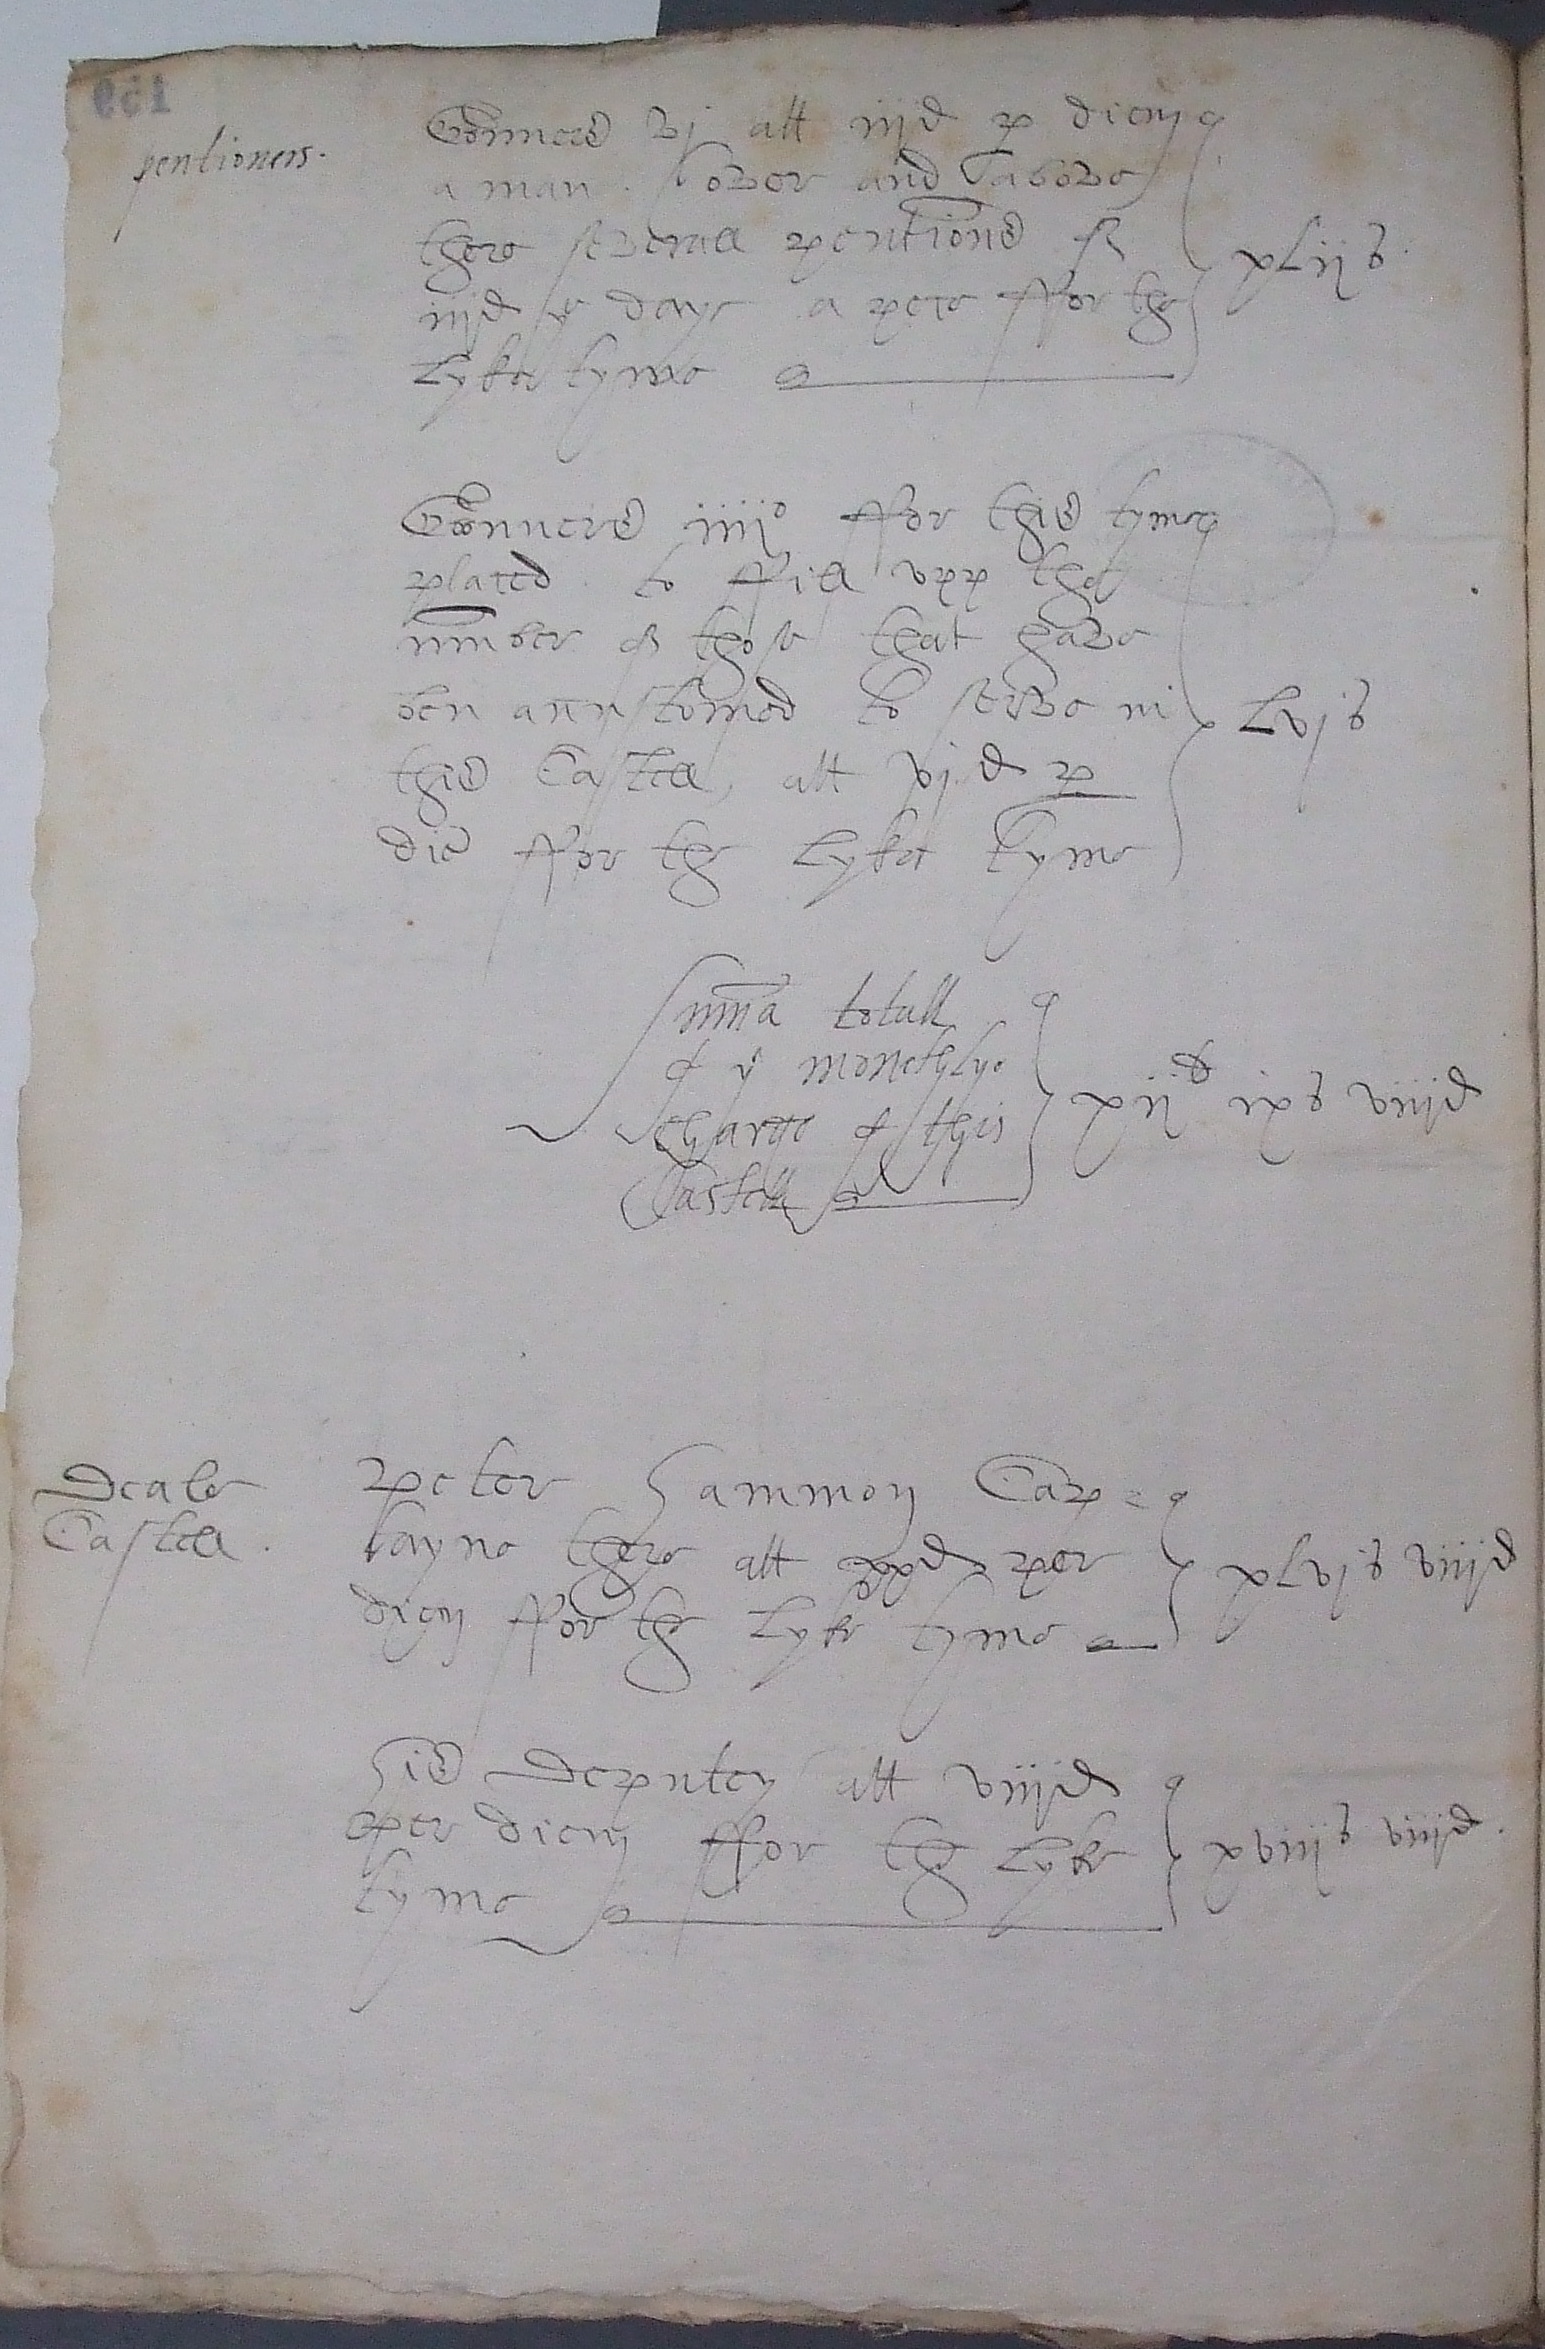 159
pentioners.
Gonners vj att iijd p diem
a man. over and above
there severall pentions of
iiijd ye daye a pece for the
lyke tyme
xlijs.
Gonners iiijo for this tyme
placed to fill upp the
number of those that have
ben accustomed to serve in
this Castell, att vjd p
die for the lyke tyme
lvjs
Summa totall
of ye monethlye
charge of this
Castell
xijli ixs viijd
Deale
Castell.
Peter Hammon Cap=
tayne there att xxd per
diem for the lyke tyme
xlvjs viijd
His Deputey att viijd
per diem for the lyke
tyme
xviijs viijd.